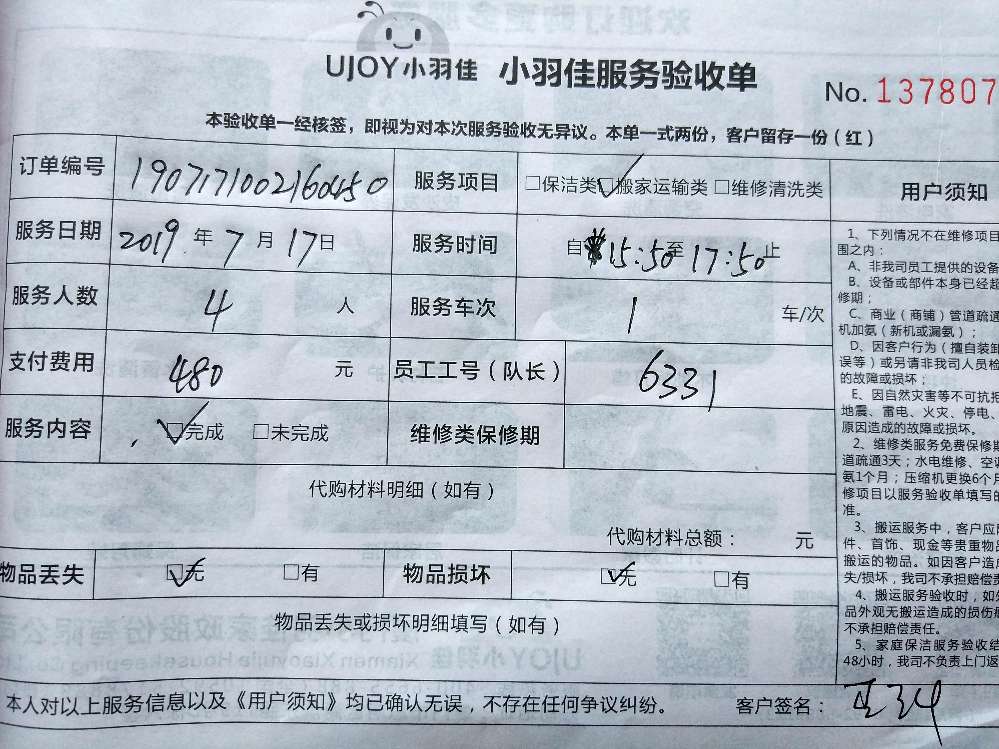 UJOY小羽佳 小羽佳服务验收单
No. 137807
本验收单一经核签，即视为对本次服务验收无异议。本单一式两份，客户留存一份（红）
订单编号 1907171002160450 服务项目 □保洁类 ☑搬家运输类 □维修清洗类
服务日期 2019 年 7 月 17 日 服务时间 自 15:50 至 17:50 止
服务人数 4 人 服务车次 1 车/次
支付费用 480 元 员工工号（队长） 6331
服务内容 ☑完成 □未完成 维修类保修期
代购材料明细（如有）
代购材料总额： 元
物品丢失 ☑无 □有 物品损坏 ☑无 □有
物品丢失或损坏明细填写（如有）
本人对以上服务信息以及《用户须知》均已确认无误，不存在任何争议纠纷。 客户签名：
用户须知
1、下列情况不在维修项目
围之内：
A、非我司员工提供的设备
B、设备或部件本身已经超
修期；
C、商业（商铺）管道疏通
机加氨（新机或漏氨）；
D、因客户行为（擅自装卸
误等）或另请非我司人员检
的故障或损坏；
E、因自然灾害等不可抗拒
地震、雷电、火灾、停电、
原因造成的故障或损坏。
2、维修类服务免费保修期
道疏通3天；水电维修、空调
氨1个月；压缩机更换6个月
修项目以服务验收单填写的
准。
3、搬运服务中，客户应
件、首饰、现金等贵重物品
搬运的物品。如因客户造成
失/损坏，我司不承担赔偿责
4、搬运服务验收时，如
品外观无搬运造成的损伤
不承担赔偿责任。
5、家庭保洁服务验收结
48小时，我司不负责上门返